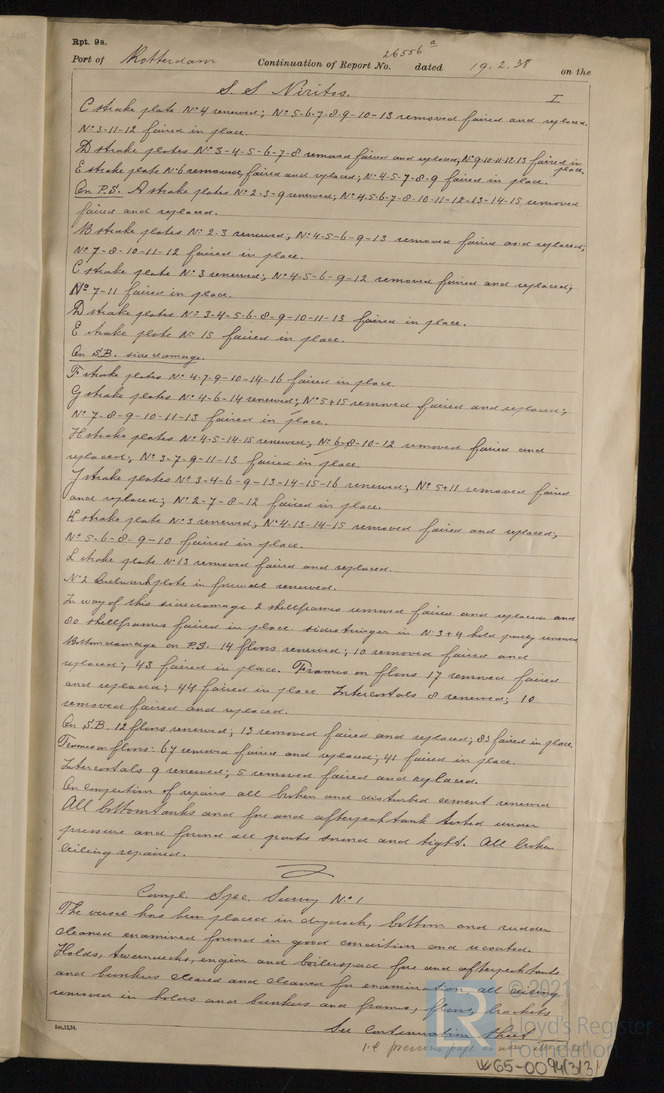 Rpt. 9a.
Port of Rotterdam Continuation of Report No. 26556a dated 19.2.38 on the
S.S. Niritos. I
C strake plate No 4 renewed; No 5-6-7-8-9-10-13 removed faired and replaced.
No 3-11-12 faired in place.
D strake plates No 3-4-5-6-7-8 removed faired and replaced; No 9-10-11-12-13 faired in place.
E strake plate No 6 removed, faired and replaced; No 4-5-7-8-9 faired in place.
On P.S. A strake plates No 2-3-9 renewed; No 4-5-6-7-8-10-11-12-13-14-15 removed
faired and replaced.
B strake plates No 2-3 renewed; No 4-5-6-9-13 removed faired and replaced;
No 7-8-10-11-12 faired in place.
C strake plate No 3 renewed; No 4-5-6-9-12 removed faired and replaced;
No 7-11 faired in place.
D strake plates No 3-4-5-6-8-9-10-11-13 faired in place.
E strake plate No 15 faired in place.
On S.B. side damage.
F strake plates No 4-7-9-10-14-16 faired in place.
G strake plates No 4-6-14 renewed; No 5+15 removed faired and replaced;
No 7-8-9-10-11-13 faired in place.
H strake plates No 4-5-14-15 renewed; No 6-8-10-12 removed faired and
replaced; No 3-7-9-11-13 faired in place.
J strake plates No 3-4-6-9-13-14-15-16 renewed; No 5+11 removed faired
and replaced; No 2-7-8-12 faired in place.
K strake plate No 3 renewed; No 4-13-14-15 removed faired and replaced;
No 5-6-8-9-10 faired in place.
L strake plate No 13 removed faired and replaced.
No 2 Bulwark plate in forewell renewed.
In way of this sidedamage 2 shellframes removed faired and replaced and
80 shellframes faired in place. sidestringer in No 3+4 hold partly renewed
Bottom damage on P.S. 14 floors renewed; 10 removed faired and
replaced; 43 faired in place. Frames on floors 17 removed faired
and replaced; 44 faired in place Intercostals 8 renewed; 10
removed faired and replaced.
On S.B. 12 floors renewed; 13 removed faired and replaced; 83 faired in place.
Frames on floors: 67 removed faired and replaced; 41 faired in place.
Intercostals 9 renewed; 5 removed faired and replaced.
On completion of repairs all broken and disturbed cement renewed
All bottomtanks and fore and afterpeaktank tested under
pressure and found all parts sound and tight. All broken
ceiling repaired.
Compl. Spec. Survey No 1
The vessel has been placed in drydock, bottom and rudder
cleaned examined found in good condition and recoated.
Holds, tweendecks, engine and boilerspace fore and afterpeaktanks
and bunkers cleared and cleaned for examination, all ceiling
removed in holds and bunkers and frames, floors, brackets
See Continuation Sheet
i.e previous page
5m,12,34.
© 2021
Lloyd's Register
Foundation
W65-0094(3/3)